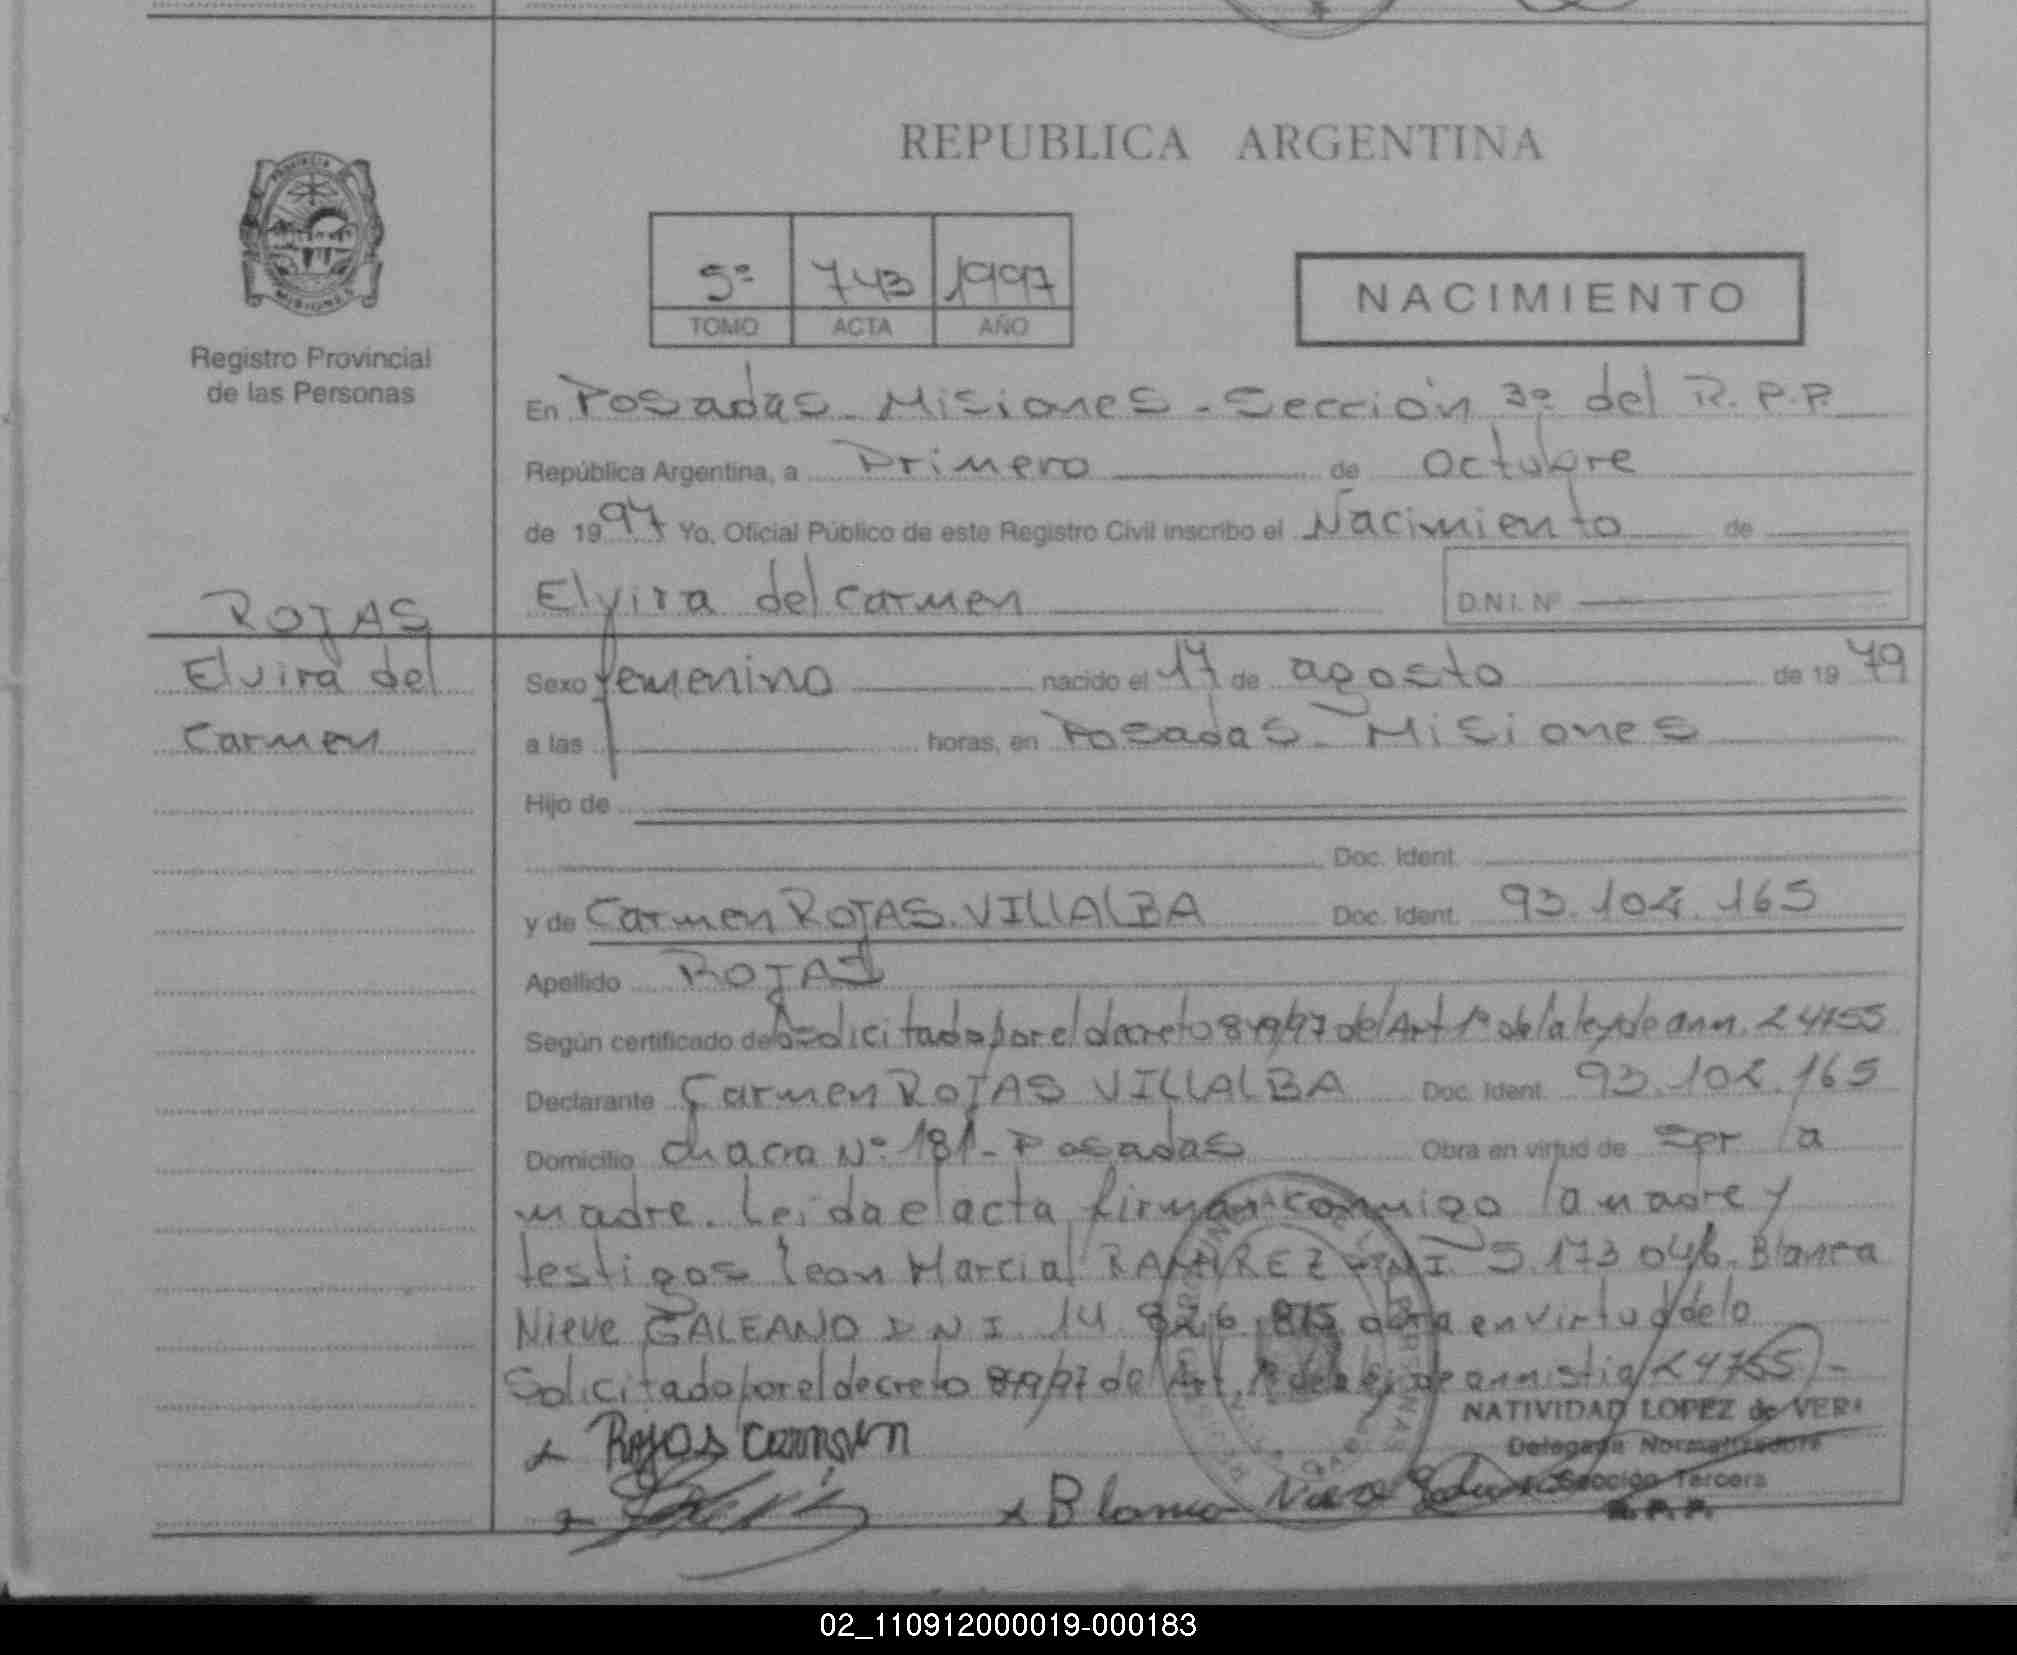 REPUBLICA ARGENTINA
PROVINCIA
MISIONES
Registro Provincial
de las Personas
5º 743 1997
TOMO ACTA AÑO
NACIMIENTO
En Posadas - Misiones - Sección 3º del R.P.P.
República Argentina, a Primero de Octubre
de 1997 Yo, Oficial Público de este Registro Civil inscribo el Nacimiento de
Elvira del Carmen D.N.I. Nº
ROJAS
Elvira del
Carmen
Sexo femenino nacido el 17 de agosto de 1979
a las horas, en Posadas - Misiones
Hijo de
Doc. Ident.
y de Carmen ROJAS VILLALBA Doc. Ident. 93.104.165
Apellido ROJAS
Según certificado de solicitado por el decreto 819/97 del Art 1º de la ley de amn. 24755
Declarante Carmen ROJAS VILLALBA Doc. Ident. 93.104.165
Domicilio chacra Nº 181 - Posadas Obra en virtud de ser la
madre. Leida el acta firman conmigo la madre y
testigos Leon Marcial RAMIREZ DNI 5.173.046. Blanca
Nieve GALEANO DNI 14 826 obra en virtud de lo
Solicitado por el decreto 819/97 del Art. 1º de la ley de amnistia 24755 -
NATIVIDAD LOPEZ de VERA
Delegada Normalizadora
Sección Tercera
R.P.P.
x Rojas Carmen
x Blanca Nieve
02_110912000019-000183